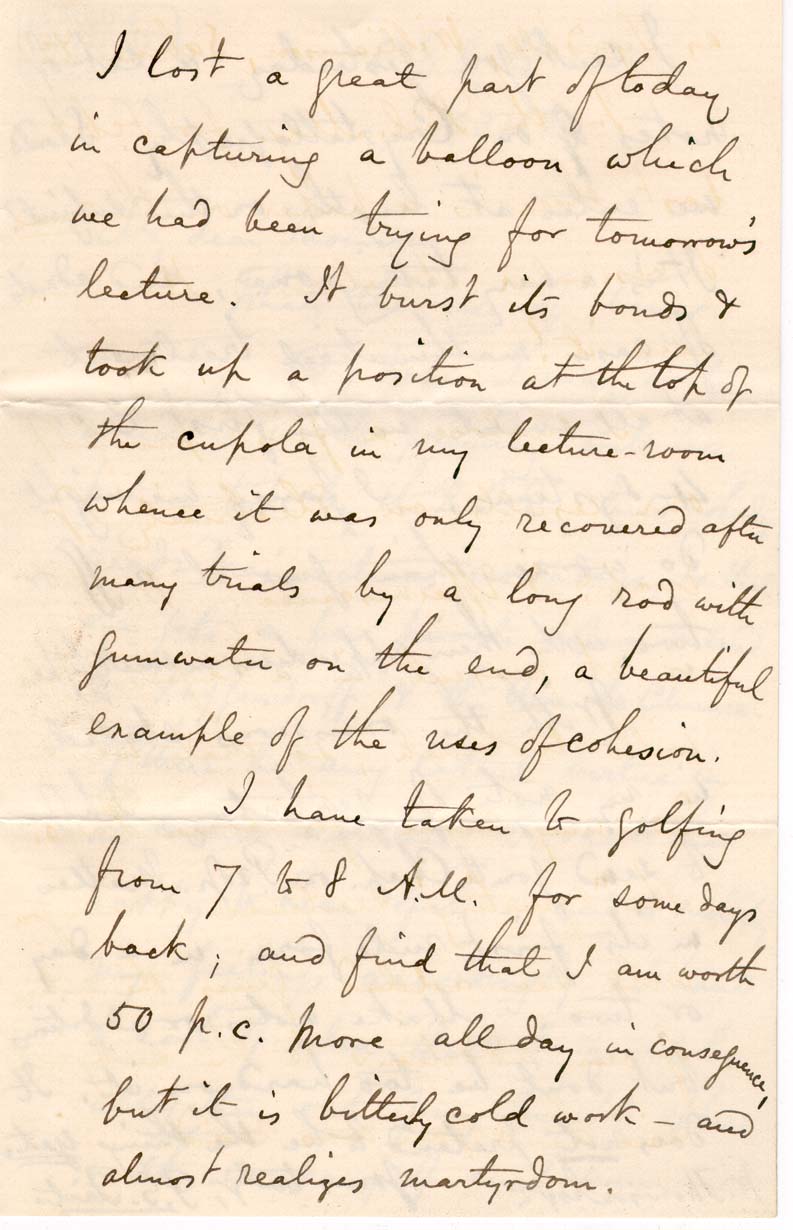 I lost a great part of today
in capturing a balloon which
we had been trying for tomorrow's
lecture. It burst its bonds &
took up a position at the top of
the cupola in my lecture-room
whence it was only recovered after
many trials by a long rod with
gumwater on the end, a beautiful
example of the uses of cohesion.
I have taken to golfing
from 7 to 8 A.M. for some days
back; and find that I am worth
50 p.c. more all day in consequence,
but it is bitterly cold work - and
almost realizes martyrdom.